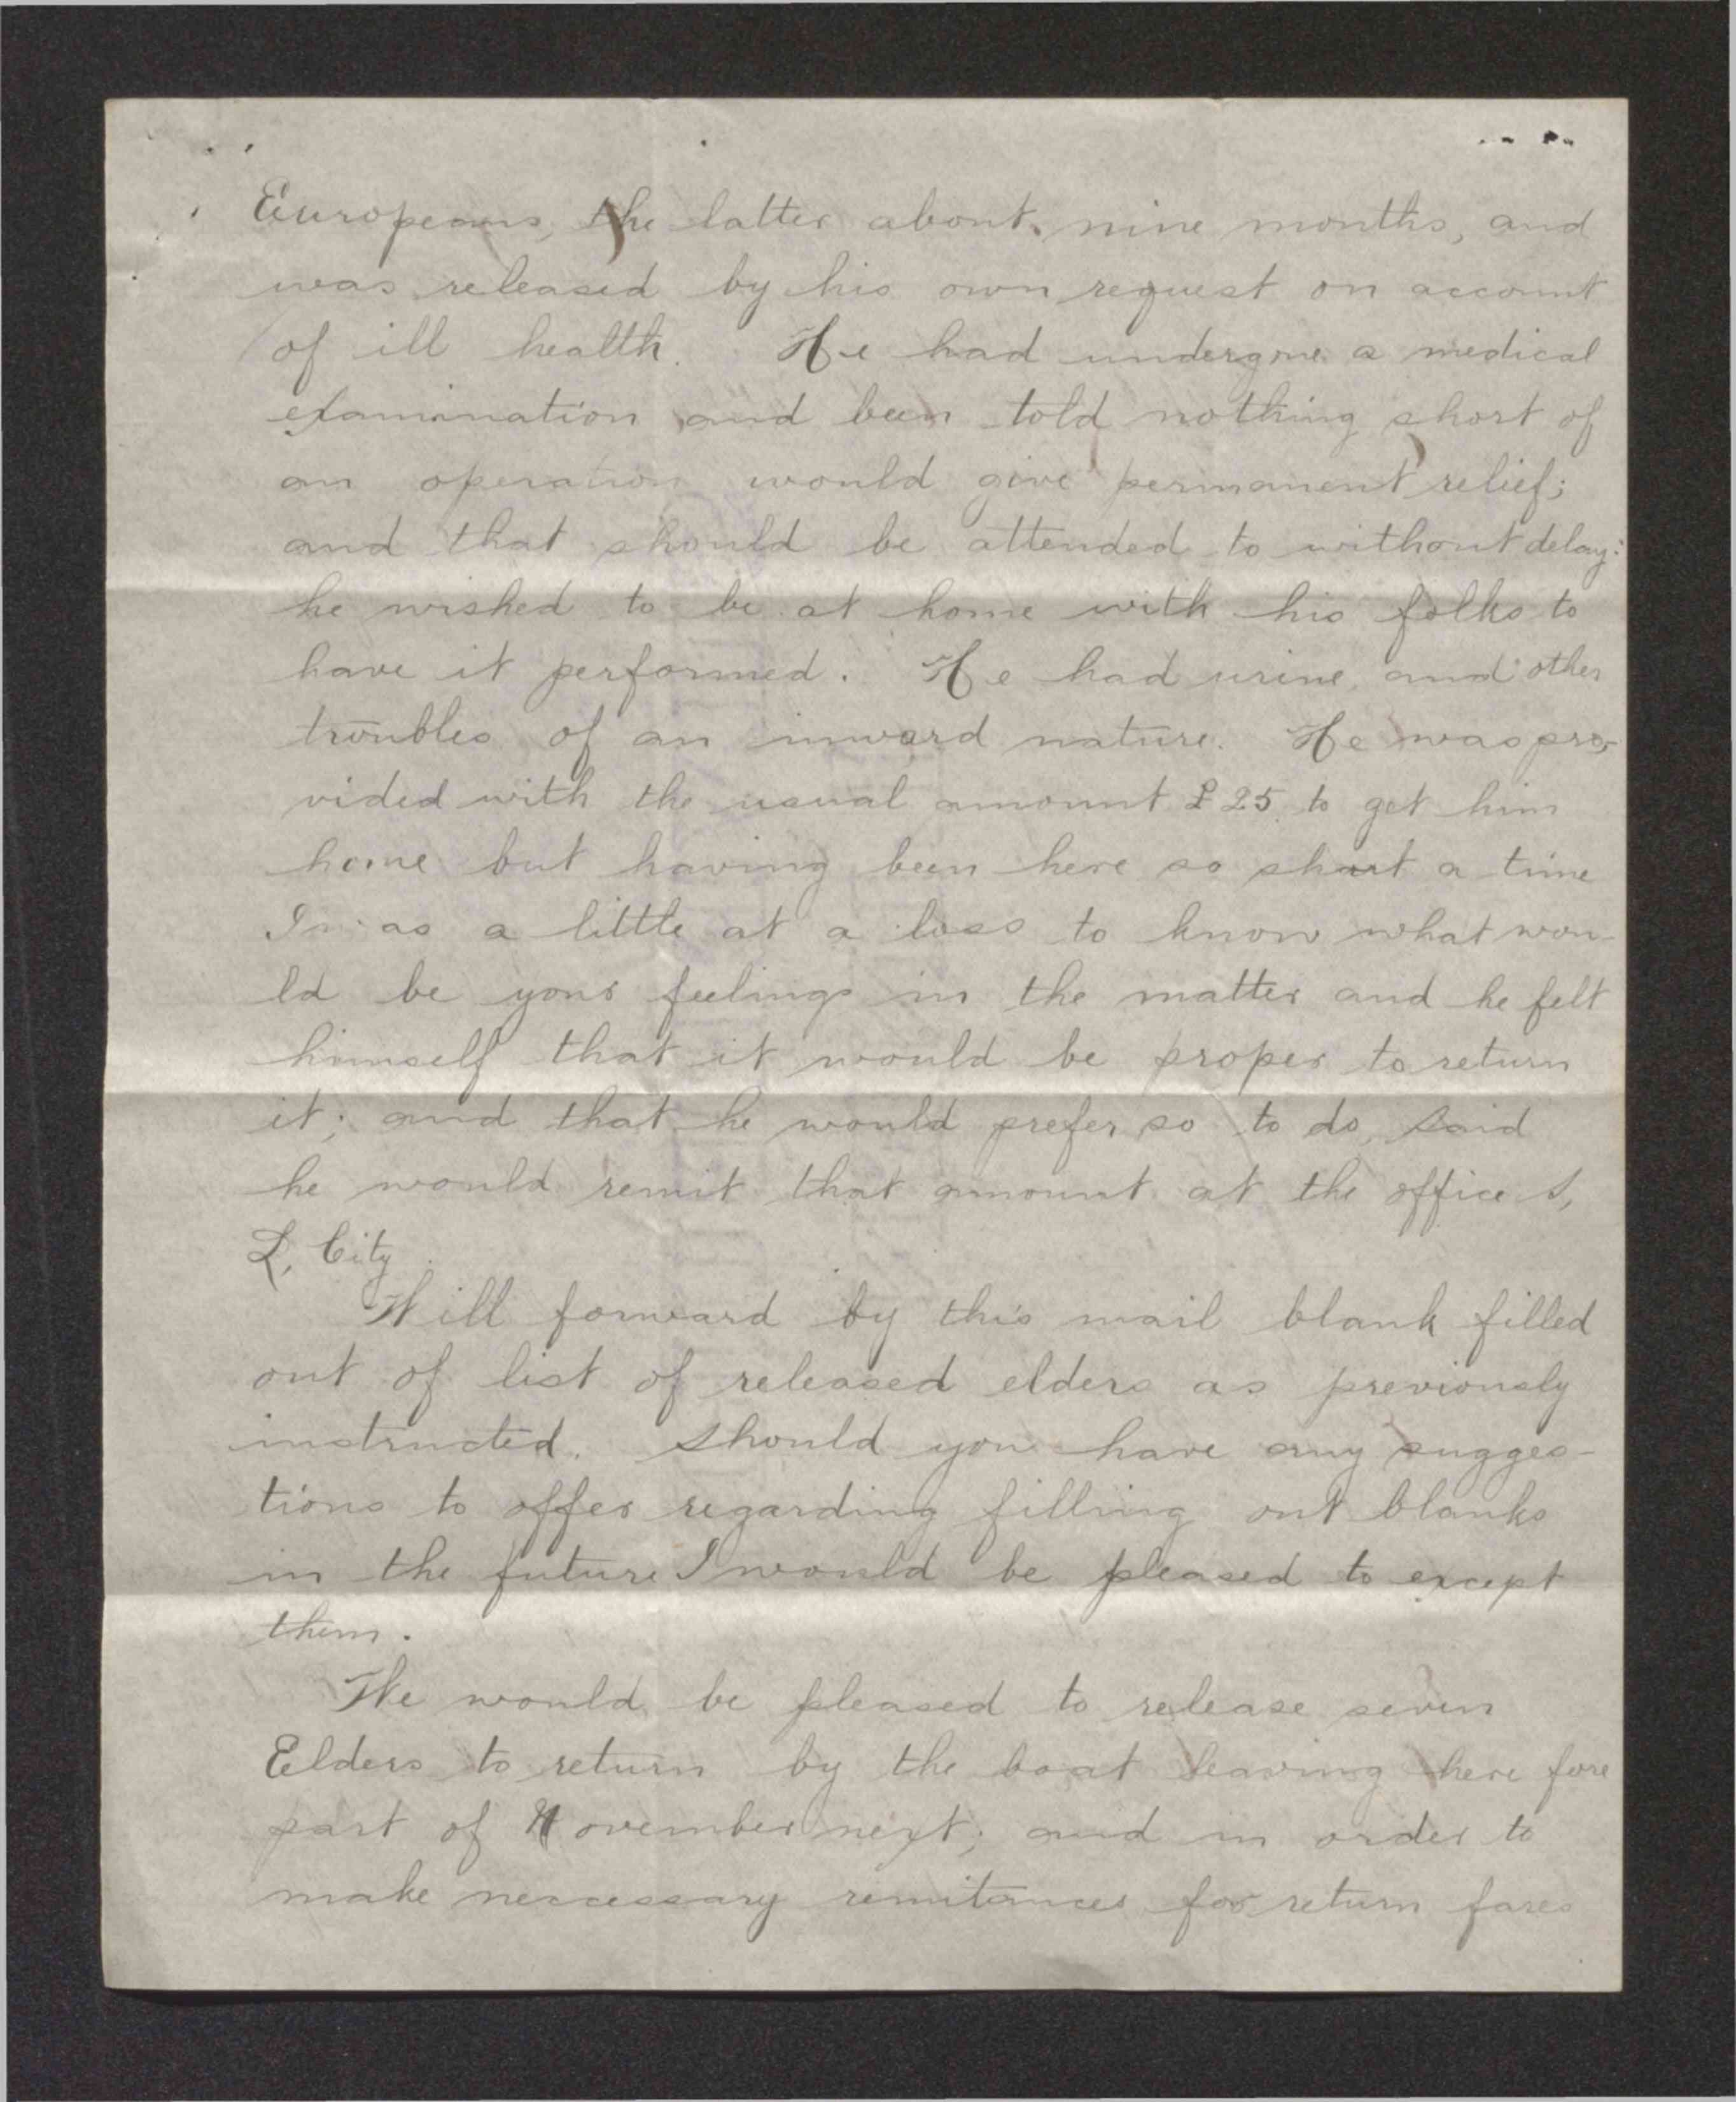 Europeans, the latter about nine months, and
was released by his own request on account
of ill health. He had undergone a medical
examination and been told nothing short of
an operation would give permanent relief;
and that should be attended to without delay:
he wished to be at home with his folks to
have it performed. He had urine and other
troubles of an inward nature. He was pro-
vided with the usual amount £25 to get him
home but having been here so short a time
I was a little at a loss to know what wou-
ld be your feelings in the matter and he felt
himself that it would be proper to return
it; and that he would prefer so to do, said
he would remit that amount at the office S,
L, City.
Will forward by this mail blank filled
out of list of released elders as previously
instructed. Should you have any sugges-
tions to offer regarding filling out blanks
in the future I would be pleased to except
them.
We would be pleased to release seven
Elders to return by the boat leaving here fore
part of November next; and in order to
make neccessary remitances for return fares